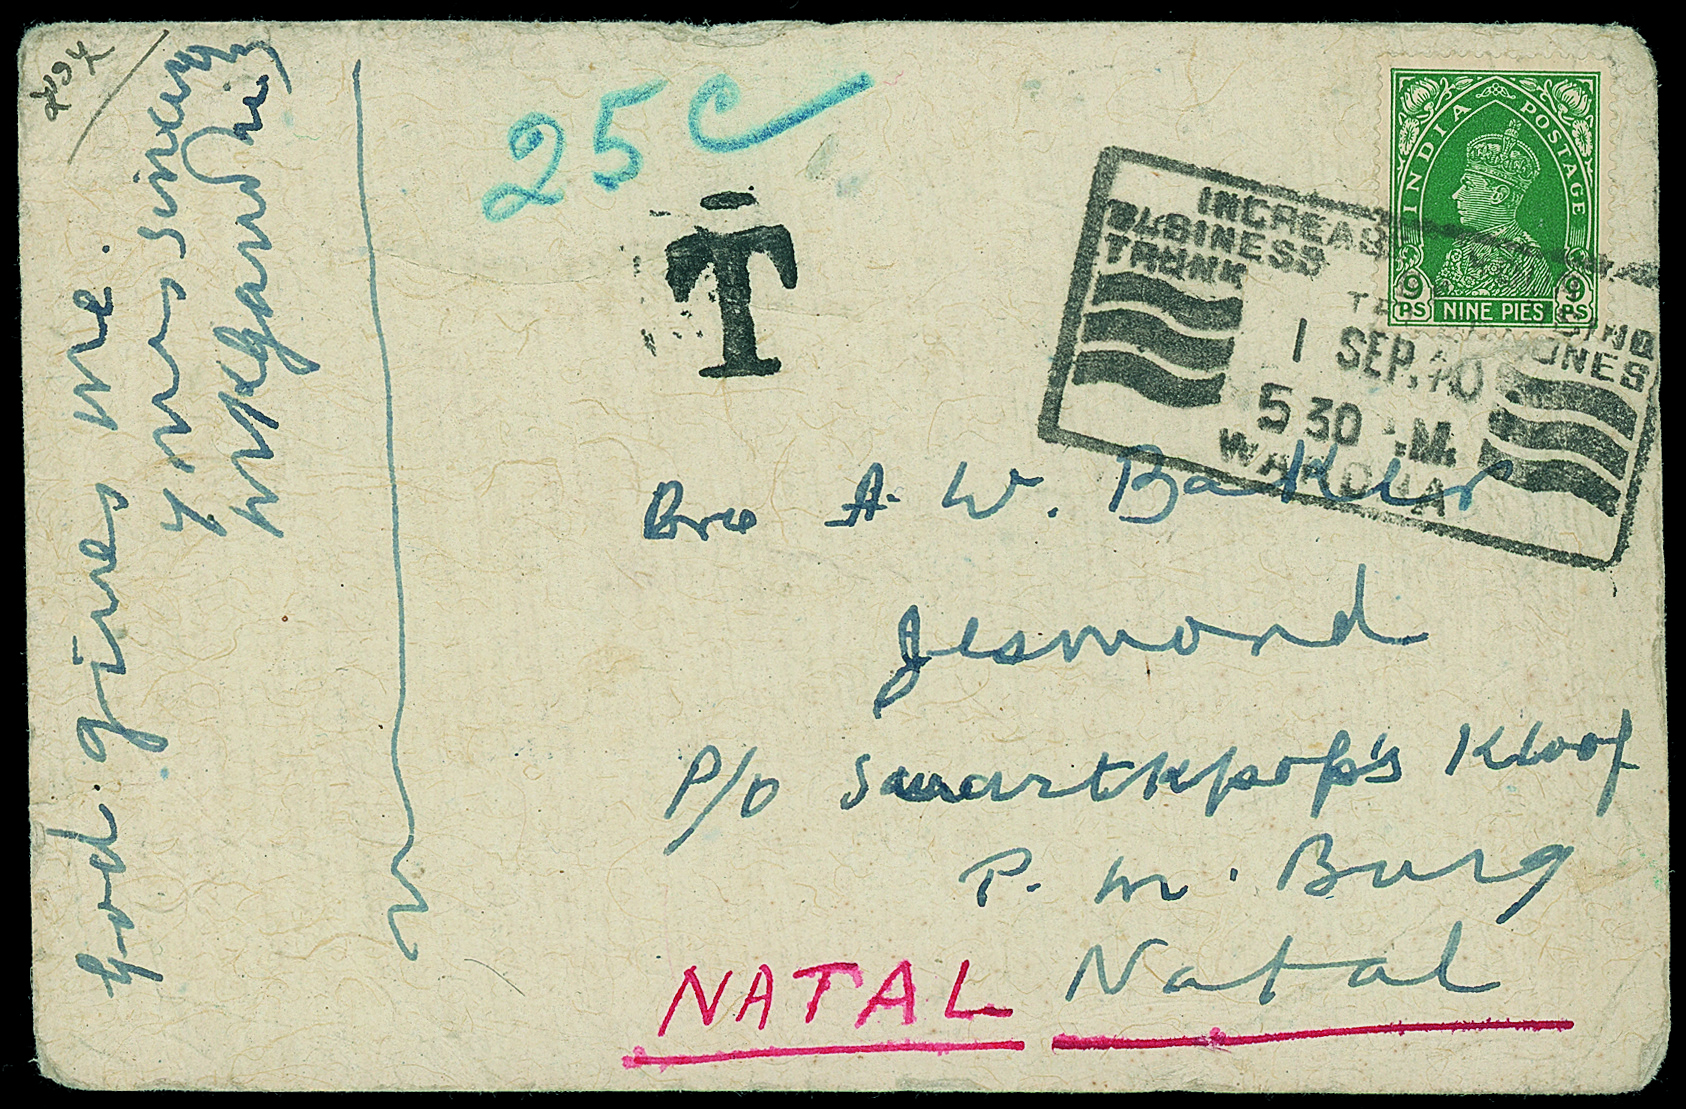 God gives me.
yours sincerely
mkgandhi
25c
T
INDIA POSTAGE
9 9
PS NINE PIES PS
INCREAS
BUSINESS
TRUNK
1 SEP. 40
5 30 .M.
WARDHA
ONES
Bro A. W. Baker
Jesmond
P/O Swartkpop's Kloof
P. M. Burg
Natal
NATAL